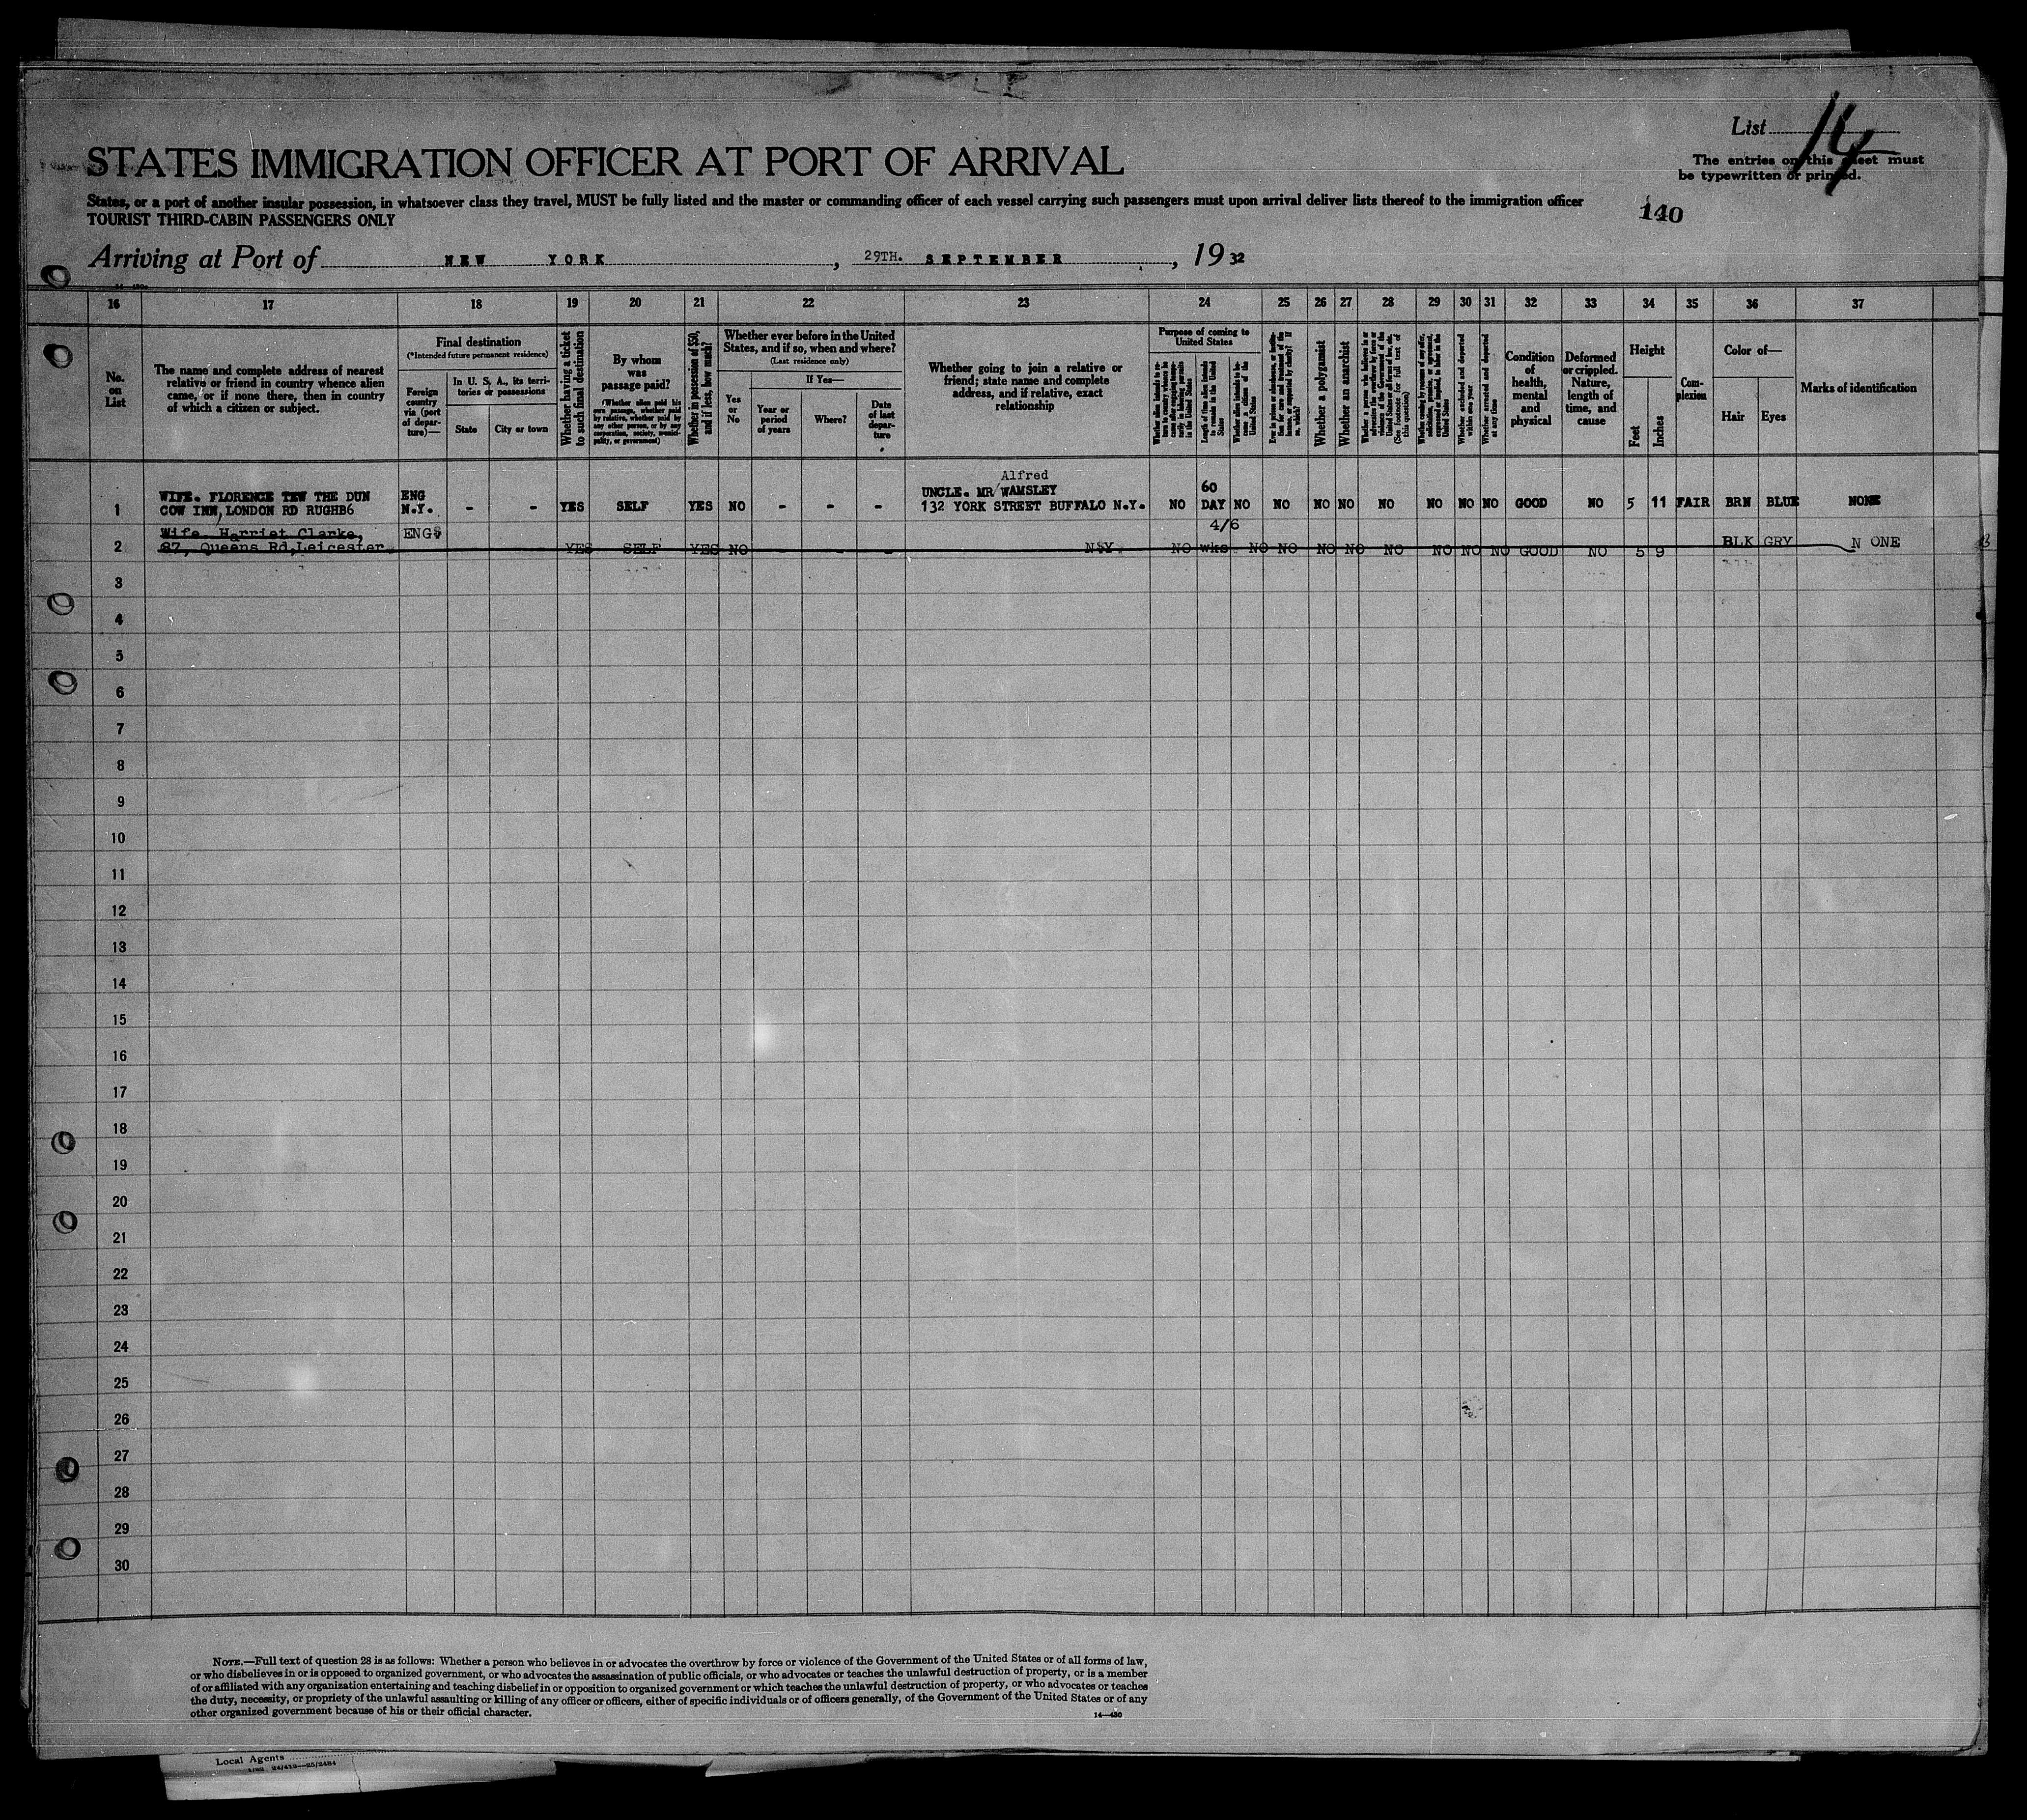 List 14
The entries on this sheet must
be typewritten or printed.
STATES IMMIGRATION OFFICER AT PORT OF ARRIVAL
States, or a port of another insular possession, in whatsoever class they travel, MUST be fully listed and the master or commanding officer of each vessel carrying such passengers must upon arrival deliver lists thereof to the immigration officer
TOURIST THIRD-CABIN PASSENGERS ONLY
140
Arriving at Port of NEW YORK, 29TH. SEPTEMBER, 19 32
16 17 18 19 20 21 22 23 24 25 26 27 28 29 30 31 32 33 34 35 36 37
No.
on
List
The name and complete address of nearest
relative or friend in country whence alien
came, or if none there, then in country
of which a citizen or subject.
Final destination
(*Intended future permanent residence)
Foreign
country
via (port
of depar-
ture)—
In U. S. A., its terri-
tories or possessions
State
City or town
Whether having a ticket
to such final destination
By whom
was
passage paid?
(Whether alien paid his
own passage, whether paid
by relative, whether paid by
any other person, or by any
corporation, society, munici-
pality, or government)
Whether in possession of $50,
and if less, how much?
Whether ever before in the United
States, and if so, when and where?
(Last residence only)
Yes
or
No
If Yes—
Year or
period
of years
Where?
Date
of last
depar-
ture
Whether going to join a relative or
friend; state name and complete
address, and if relative, exact
relationship
Purpose of coming to
United States
Whether alien intends to re-
turn to country whence he
came after engaging tempo-
rarily in laboring pursuits
in the United States
Length of time alien intends
to remain in the United
States
Whether alien intends to be-
come a citizen of the
United States
Whether a polygamist
Whether an anarchist
(See footnote for full text of
this question)
Whether excluded and deported
within one year
Whether arrested and deported
at any time
Condition
of
health,
mental
and
physical
Deformed
or crippled.
Nature,
length of
time, and
cause
Height
Feet
Inches
Com-
plexion
Color of—
Hair
Eyes
Marks of identification
Alfred
WIFE. FLORENCE TEW THE DUN ENG UNCLE. MR WAMSLEY 60
1 COW INN, LONDON RD RUGHB6 N.Y. - - YES SELF YES NO - - - 132 YORK STREET BUFFALO N.Y. NO DAY NO NO NO NO NO NO NO NO GOOD NO 5 11 FAIR BRN BLUE NONE
Wife. Harriet Clarke, ENG 4/6
2 87, Queens Rd, Leicester YES SELF YES NO - - - NO wks NO NO NO NO NO NO NO NO GOOD NO 5 9 BLK GRY N ONE
3
4
5
6
7
8
9
10
11
12
13
14
15
16
17
18
19
20
21
22
23
24
25
26
27
28
29
30
NOTE.—Full text of question 28 is as follows: Whether a person who believes in or advocates the overthrow by force or violence of the Government of the United States or of all forms of law,
or who disbelieves in or is opposed to organized government, or who advocates the assassination of public officials, or who advocates or teaches the unlawful destruction of property, or is a member
of or affiliated with any organization entertaining and teaching disbelief in or opposition to organized government or which teaches the unlawful destruction of property, or who advocates or teaches
the duty, necessity, or propriety of the unlawful assaulting or killing of any officer or officers, either of specific individuals or of officers generally, of the Government of the United States or of any
other organized government because of his or their official character.
14—430
Local Agents